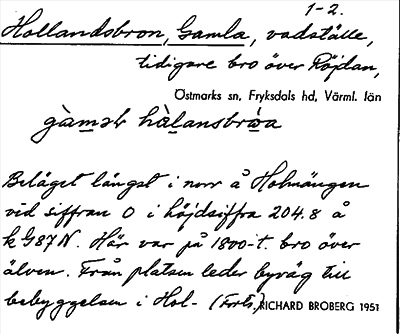 1-2.
Hollandsbron, Gamla, vadställe,
tidigare bro över Röjdan,
Östmarks sn, Fryksdals hd, Värml. län
gàməlr hàlansbròa
Beläget längst i norr å Holmängen
vid siffran 0 i höjdsiffra 204.8 å
kG87N. Här var på 1800-t. bro över
älven. Från platsen leder byväg till
bebyggelsen i Hol- (Forts.) RICHARD BROBERG 1951